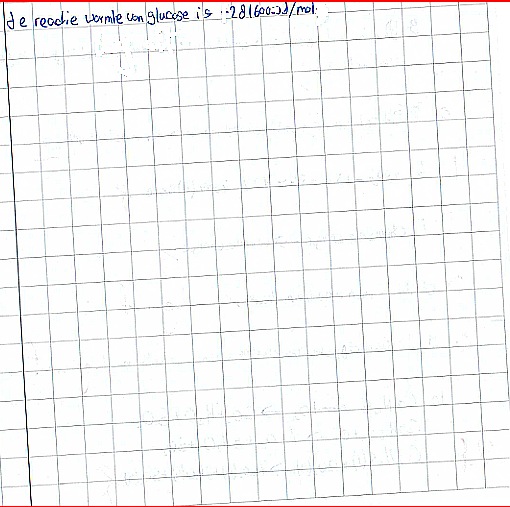 de reactie warmte van glucose is -2816000 J/mol.